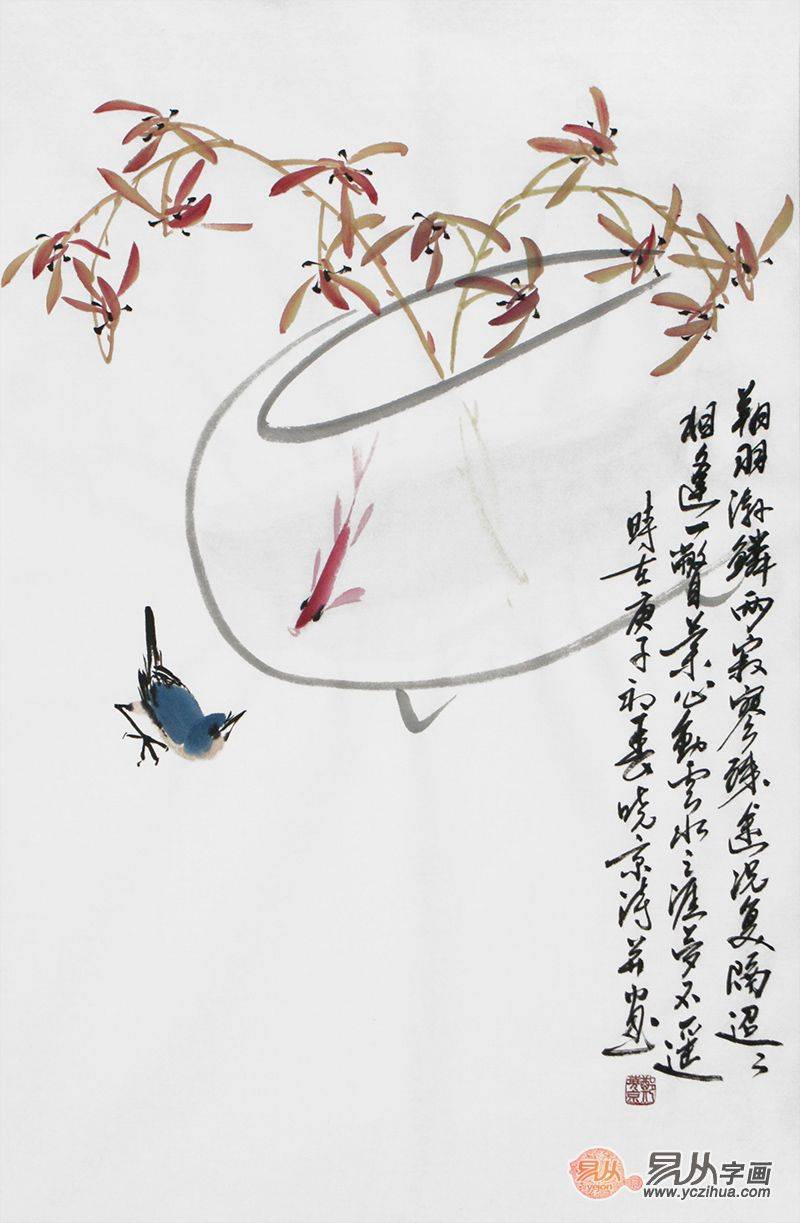 翔羽游鳞两寂寥殊途况复隔迢〻
相逢一瞥心動雲水之涯夢不遥
時在庚子初春晓京诗并画
易从
yejon
易从字画
www.yczihua.com